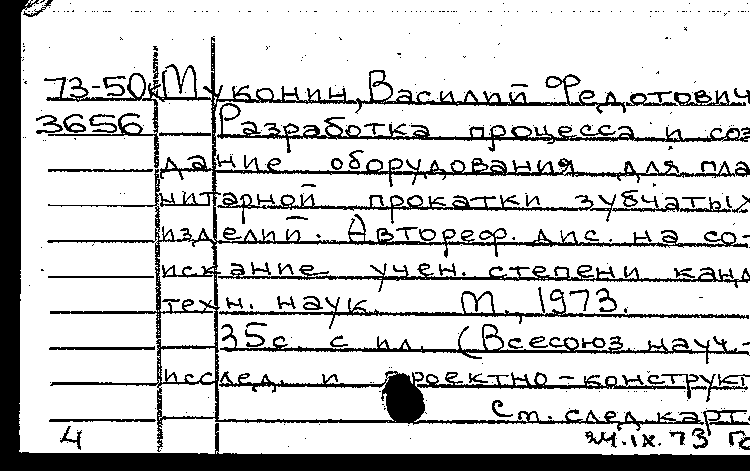 73-50 Муконин, Василий Федотович
3656 Разработка процесса и соз
дание оборудования для пла
нитарной прокатки зубчатых
изделий. Автореф. дис. на со-
искание учен. степени канд
техн. наук. М., 1973.
35с. с ил. (Всесоюз. науч.-
исслед. и проектно-конструкт
См. след. карт
4 24.IX.73